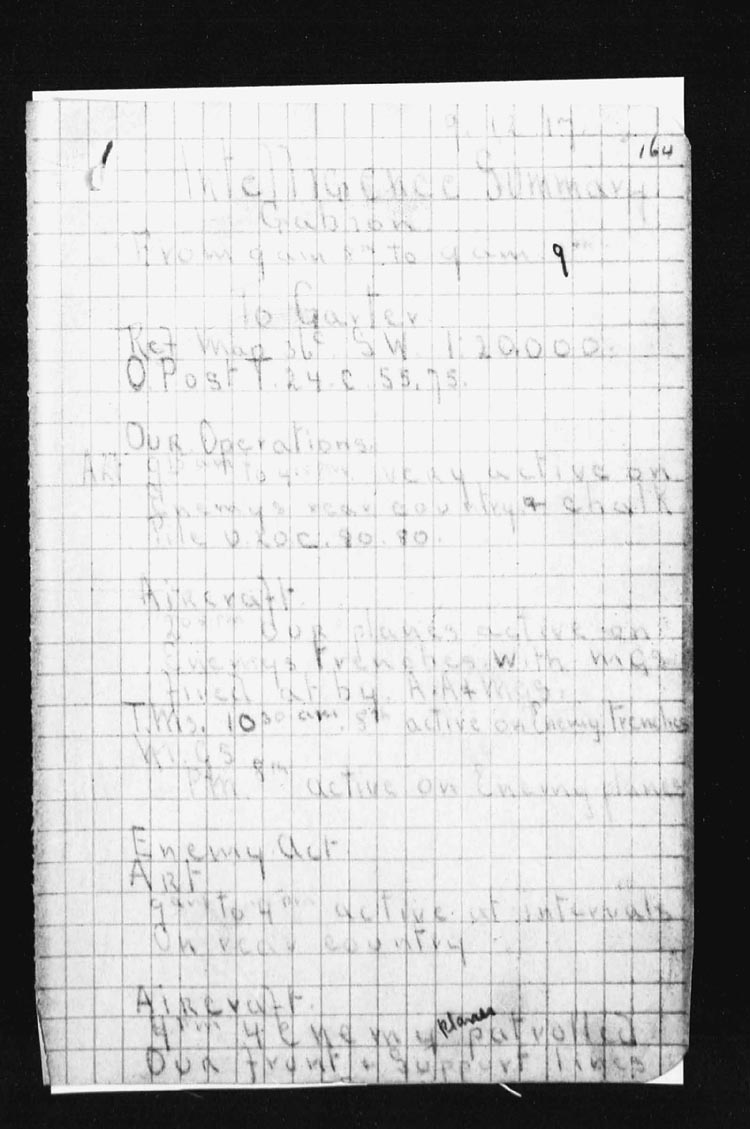 9. 12 17.
164
Intelligence Summary
Gabion
From 9am 8th to 9am 9th
to Garter
Ref Map 36c S W 1.20.000.
O.Post T.24.c.55.75.
Our Operations.
Art 9 am to 4 pm very active on
Enemys rear country & chalk
Pile U.20.C.80.80.
Aircraft.
2 pm Our planes active on
Enemys Trenches with M.G.s
fired at by A.A & M.G.s.
T.M.s. 10 30 am. 8th active on Enemy Trenches
M.G.S
PM. 8th active on Enemy planes
Enemy Act.
Art
9am to 4pm active at intervals
On rear country
Aircraft.
4 Enemy planes patrolled
Our front & support lines